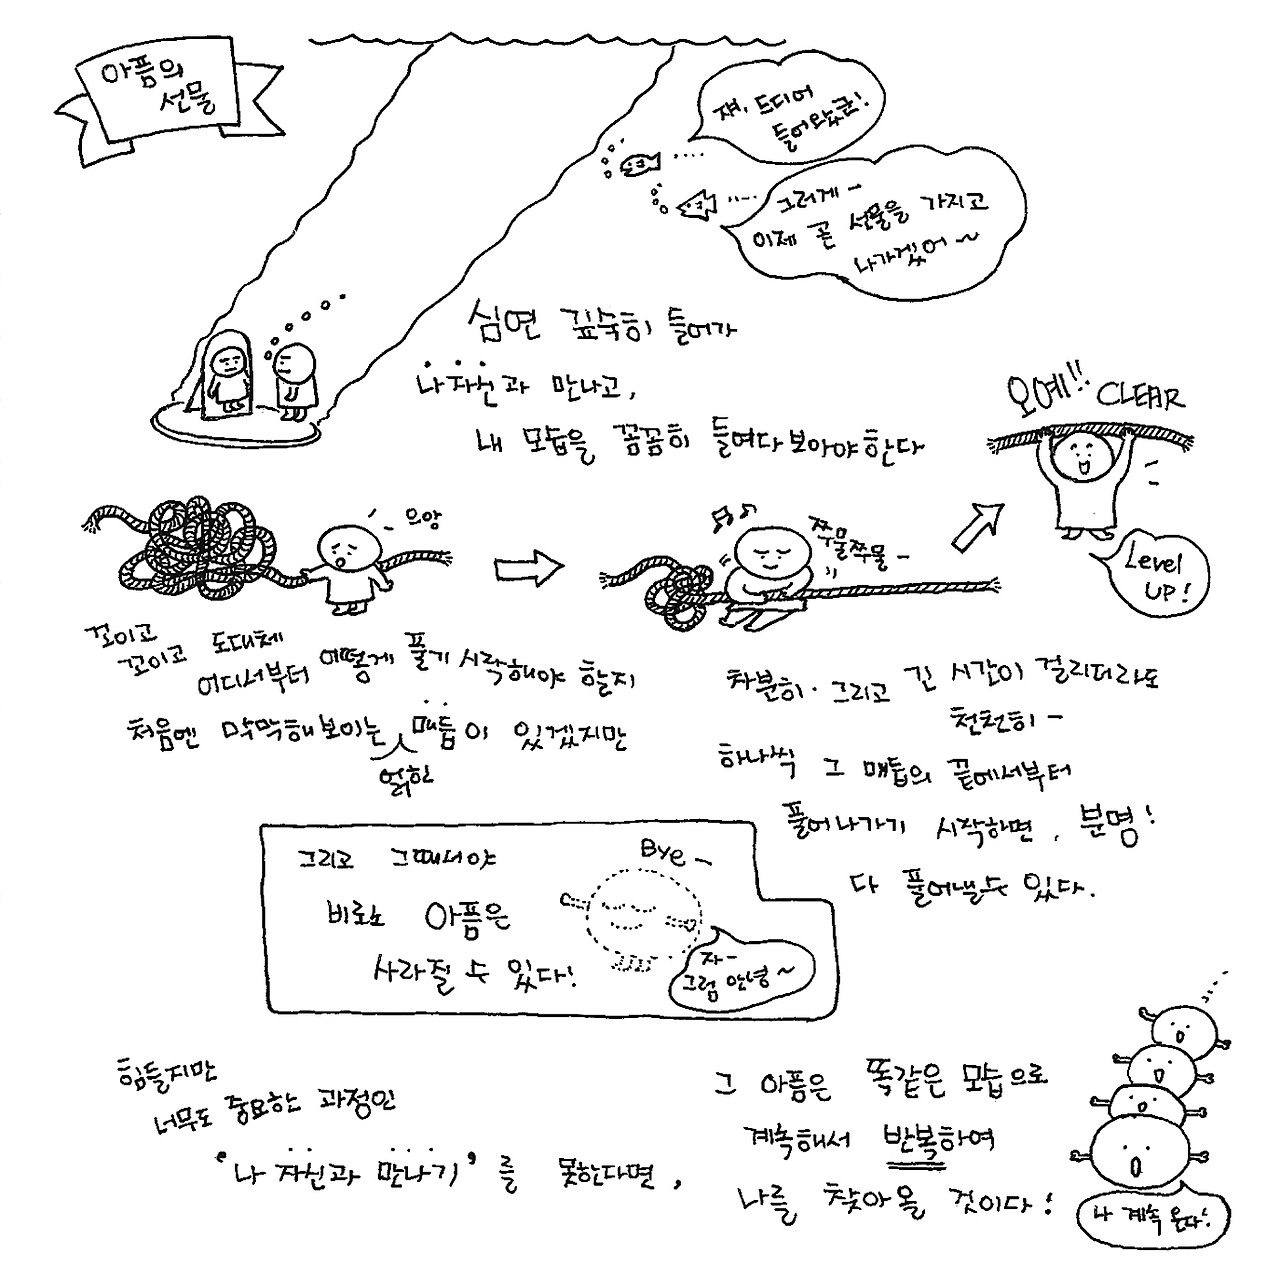 아픔의
선물
쟤, 드디어
들어왔군!
그러게~
이제 곧 선물을 가지고
나가겠어~
심연 깊숙히 들어가
나 자신과 만나고,
내 모습을 꼼꼼히 들여다보아야한다
으앙
쭈물쭈물~
오예!! CLEAR
Level
UP!
꼬이고
꼬이고 도대체
어디서부터 어떻게 풀기 시작해야 할지
처음엔 막막해보이는 매듭이 있겠지만
얽힌
차분히. 그리고 긴 시간이 걸리더라도
천천히-
하나씩 그 매듭의 끝에서부터
풀어나가기 시작하면, 분명!
다 풀어낼 수 있다.
그리고 그때서야
비로소 아픔은
사라질 수 있다!
Bye~
자-
그럼 안녕~
힘들지만
너무도 중요한 과정인
'나 자신과 만나기'를 못한다면,
그 아픔은 똑같은 모습으로
계속해서 반복하여
나를 찾아올 것이다!
나 계속 온다!